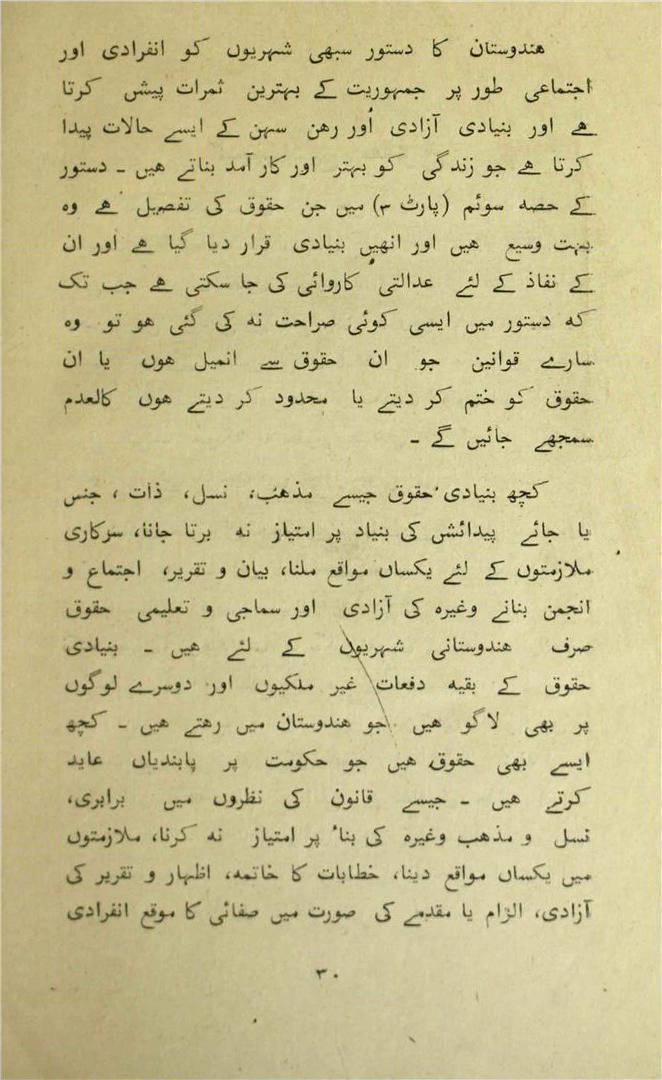 ھندوستان کا دستور سبھی شہریوں کو انفرادی اور
اجتماعی طور پر جمہوریت کے بہترین ثمرات پیش کرتا
ھے اور بنیادی آزادی اُور رھن سہن کے ایسے حالات پیدا
کرتا ھے جو زندگی کو بہتر اور کار آمد بناتے ھیں ۔ دستور
کے حصہ سوئم (پارٹ ۳) میں جن حقوق کی تفصیل ھے وہ
بہت وسیع ھیں اور انھیں بنیادی قرار دیا گیا ھے اور ان
کے نفاذ کے لئے عدالتی کاروائی کی جا سکتی ھے جب تک
کہ دستور میں ایسی کوئی صراحت نہ کی گئی ھو تو وہ
سارے قوانین جو ان حقوق سے انمیل ھوں یا ان
حقوق کو ختم کر دیتے یا محدود کر دیتے ھوں کالعدم
سمجھے جائیں گے ۔
کچھ بنیادی حقوق جیسے مذھب، نسل، ذات ، جنس
یا جائے پیدائش کی بنیاد پر امتیاز نہ برتا جانا، سرکاری
ملازمتوں کے لئے یکساں مواقع ملنا، بیان و تقریر، اجتماع و
انجمن بنانے وغیرہ کی آزادی اور سماجی و تعلیمی حقوق
صرف ھندوستانی شہریوں کے لئے ھیں ۔ بنیادی
حقوق کے بقیہ دفعات غیر ملکیوں اور دوسرے لوگوں
پر بھی لاگو ھیں جو ھندوستان میں رھتے ھیں ۔ کچھ
ایسے بھی حقوق ھیں جو حکومت پر پابندیاں عاید
کرتے ھیں ۔ جیسے قانون کی نظروں میں برابری،
نسل و مذھب وغیرہ کی بناٴ پر امتیاز نہ کرنا، ملازمتوں
میں یکساں مواقع دینا، خطابات کا خاتمہ، اظہار و تقریر کی
آزادی، الزام یا مقدمے کی صورت میں صفائی کا موقع انفرادی
۳۰